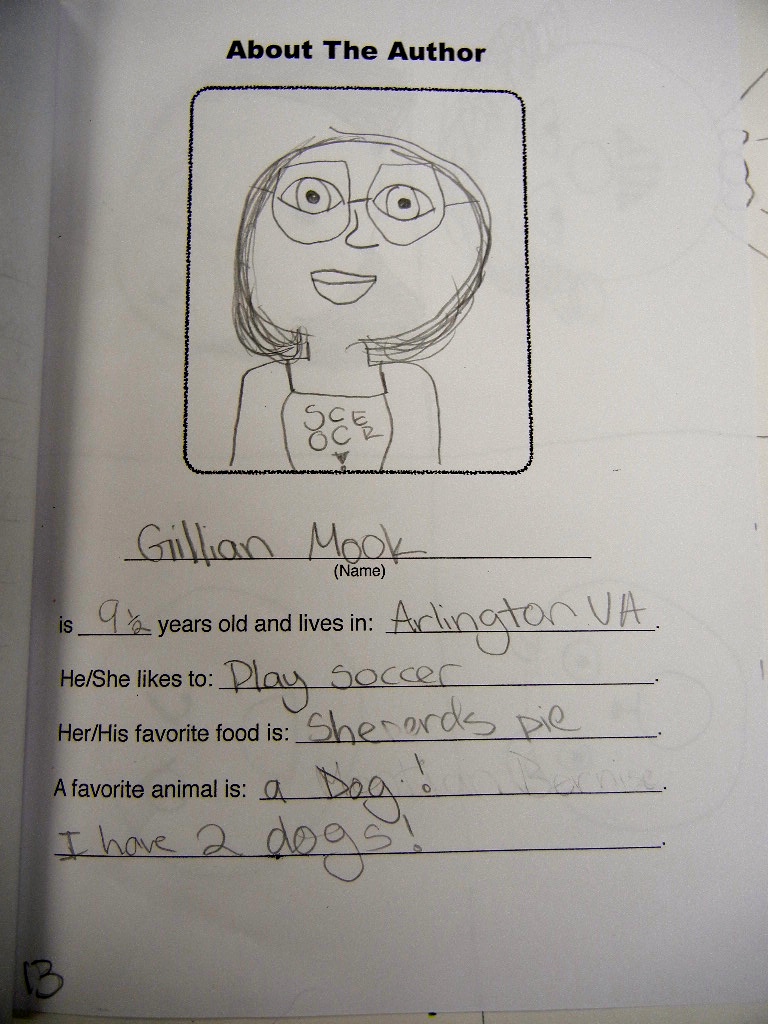 About The Author
SCE
OCR
Gillian Mook
(Name)
is 9½ years old and lives in: Arlington VA.
He/She likes to: Play soccer.
Her/His favorite food is: Sherards pie.
A favorite animal is: a Dog!.
I have 2 dogs!.
13